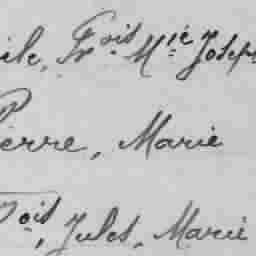 ile, Fr̲ois M̲ie Joseph
Pierre, Marie
F̲ois, Jules, Marie